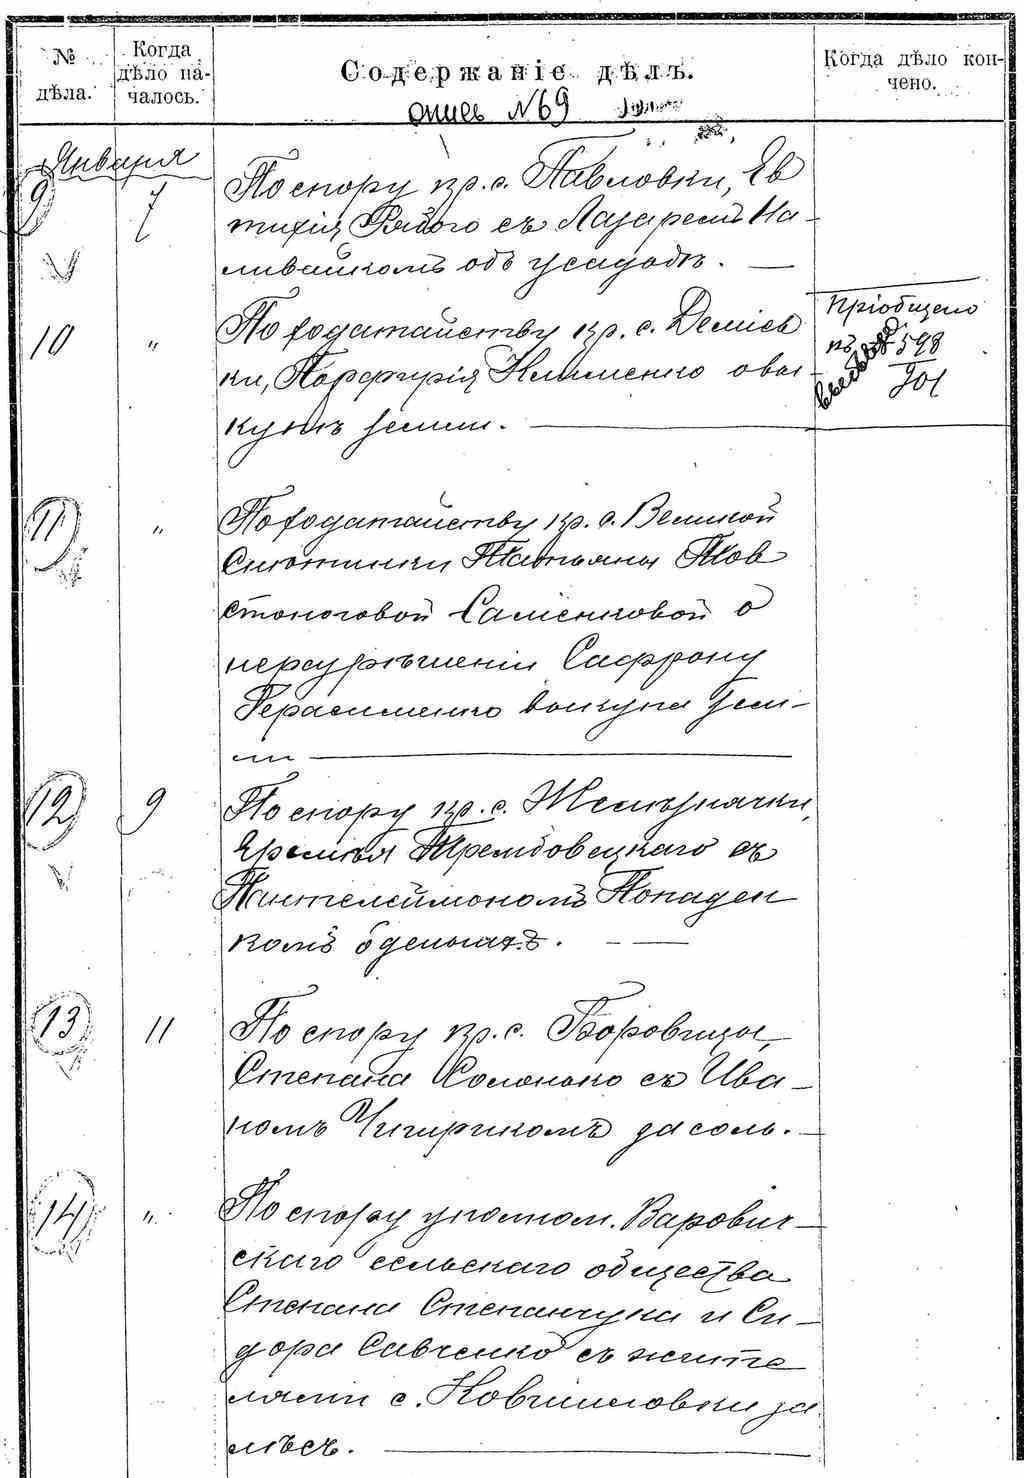 № дѣла.
Когда дѣло началось.
Содержаніе дѣлъ.
Когда дѣло кончено.
опись №69
Января
9 7 По спору кр. с. Павловки, Ев
тихія Рябого съ Лазаремъ На-
ливайкомъ объ усадьбѣ. —
10 " По ходатайству кр. с. Деміев
ки, Порфирія Клименко о вы-
купѣ земли. —
Пріобщено
къ 598
901
11 " По ходатайству кр. с. Великой
Снѣтинки Татьяны Тов
стоноговой Саліенковой о
неразрѣшеніи Сафрону
Герасименко выкупа зем-
ли —
12 9 По спору кр. с. Желѣзнячки,
Еремѣя Трембовецкаго съ
Пантелеймономъ Попаден
комъ о деньгахъ. —
13 11 По спору кр. с. Боровицы,
Степана Солонько съ Ива-
номъ Чигирикомъ за соль. —
14 " По спору уполном. Варович-
скаго сельскаго общества
Степана Степанчука и Си-
дора Савченко съ жите
лями с. Ковшиловки за
лѣсъ. —